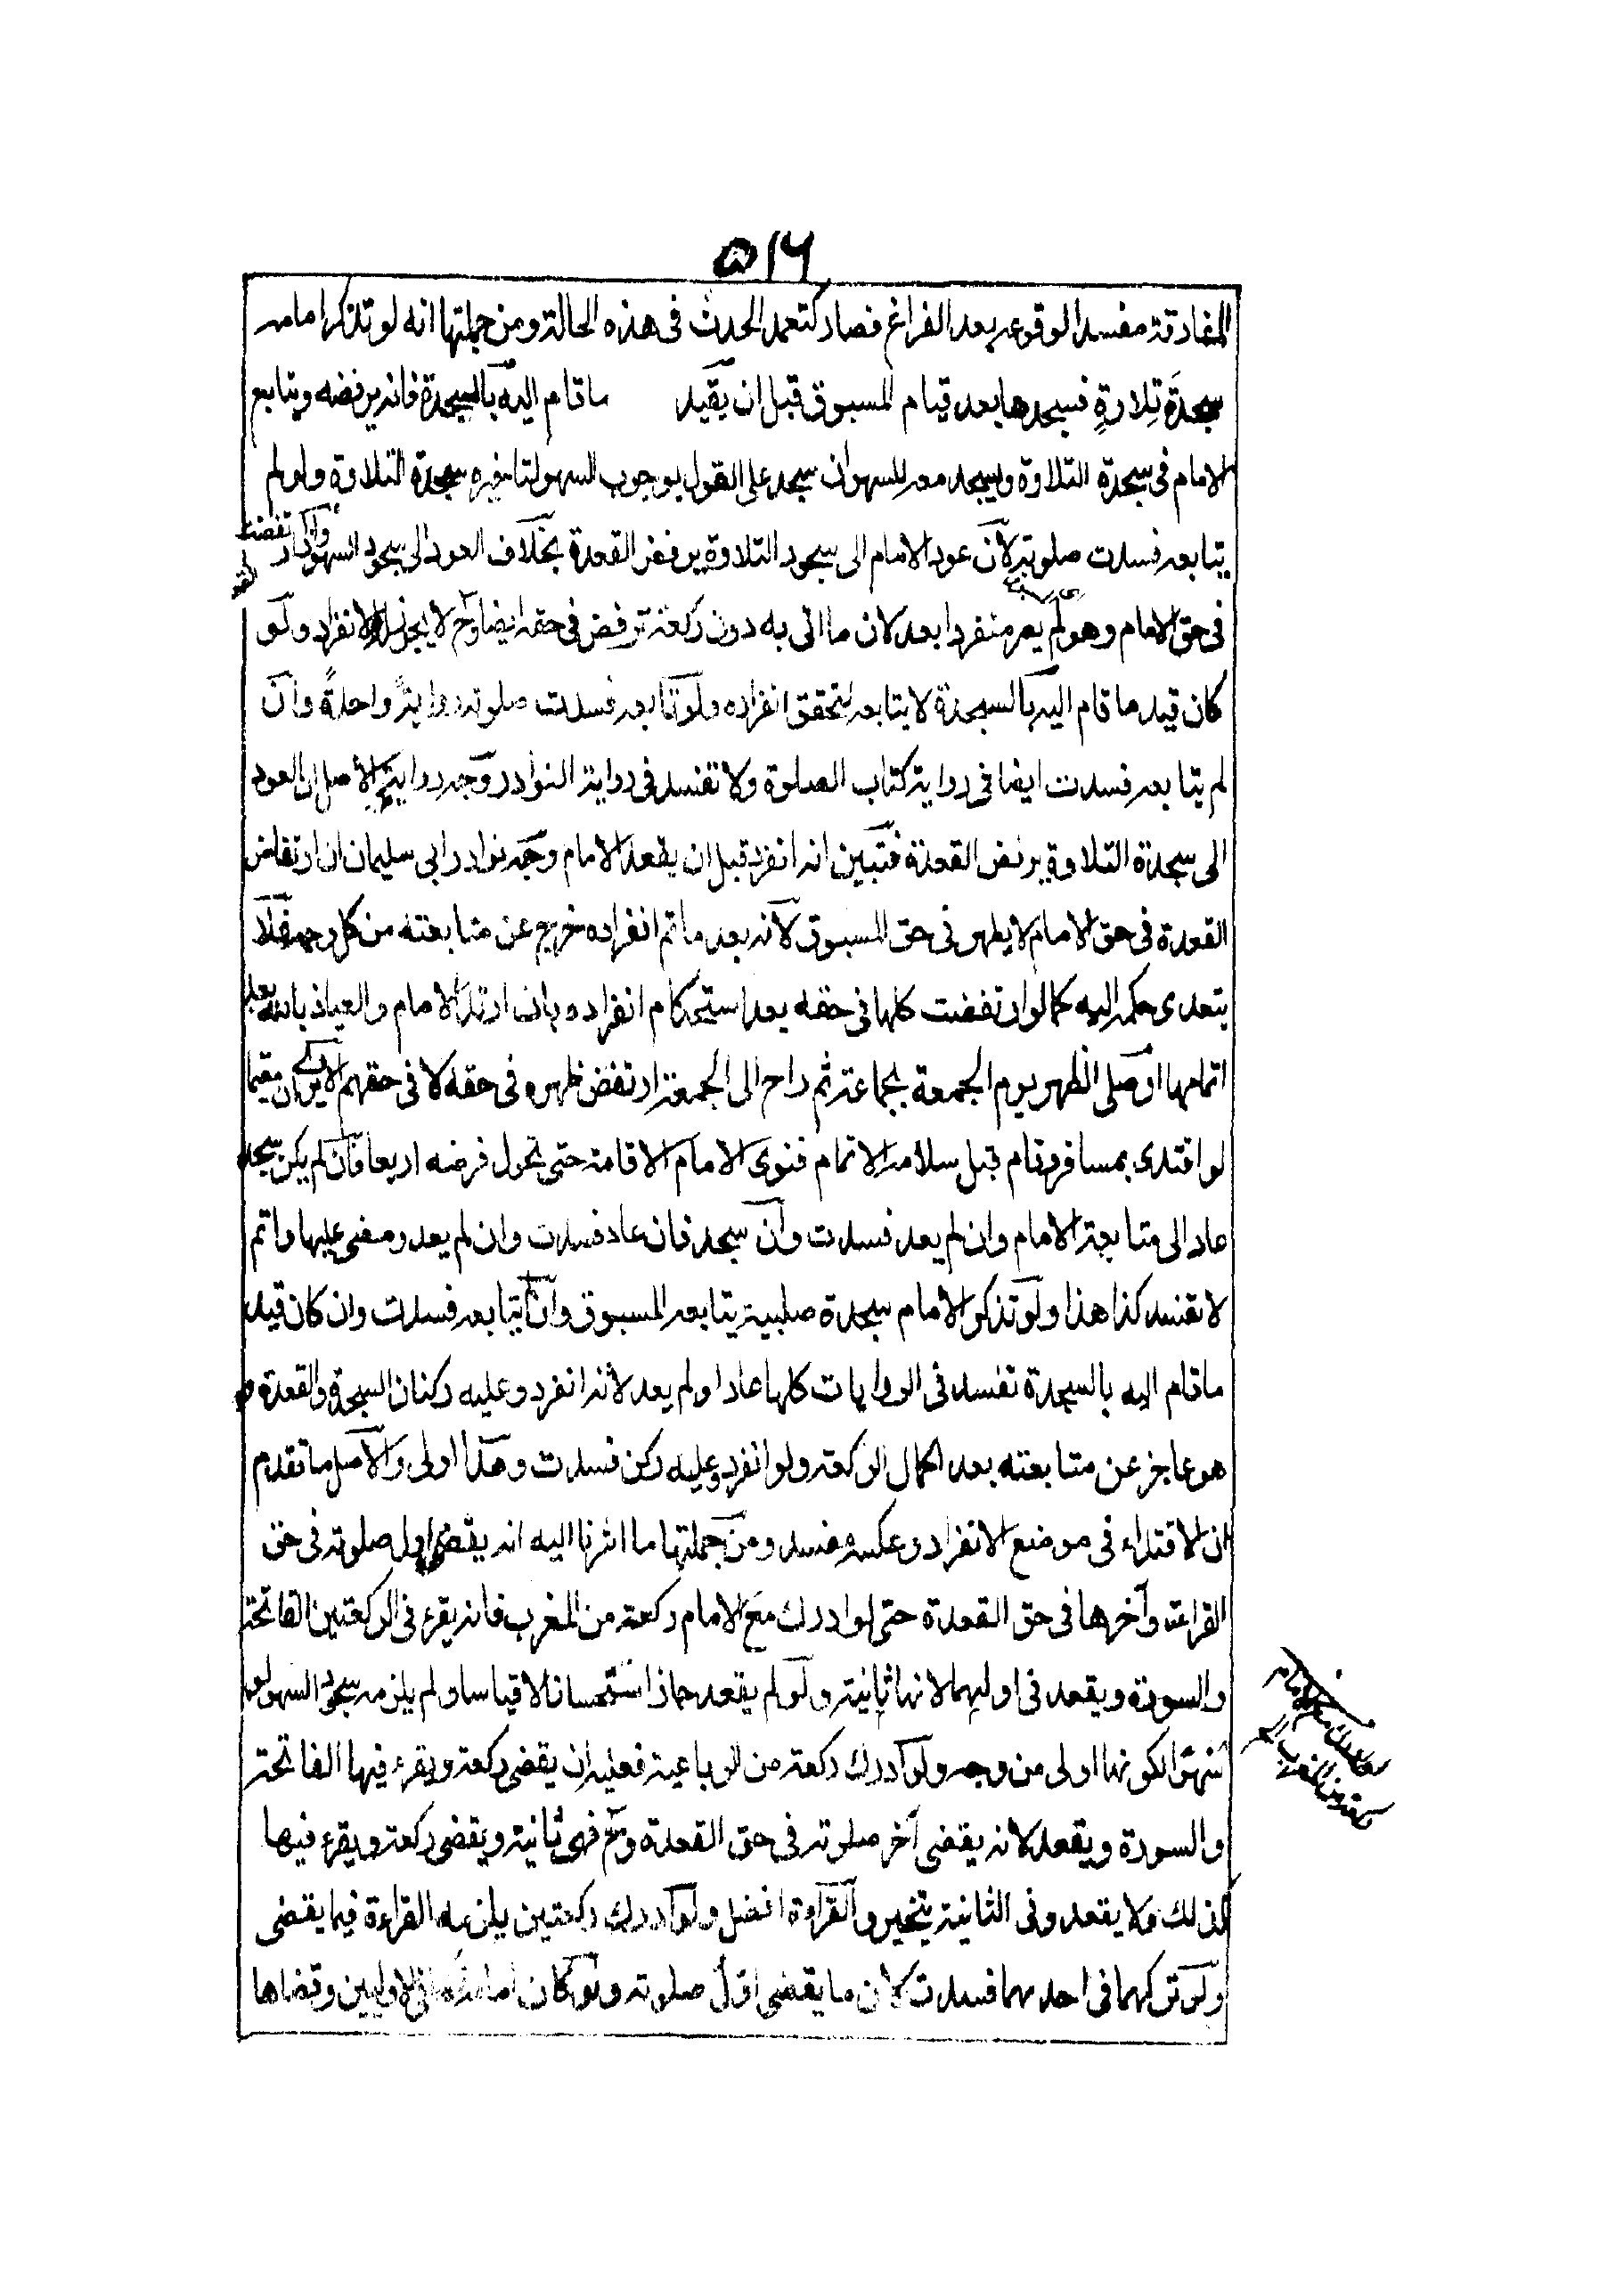 ۵۱۶
المفارقة مفسدا لوقوعه بعد الفراغ فصار كتعمد الحدث فى هذه الحالة ومن جملتها انه لو تذكر امامه
سجدَة تِلاوةٍ فسجدها بعد قيام المسبوق قبل ان يقيد ما قام اليه بالسجدة فانه يرفضه ويتابع
الامام فى سجدة التلاوة ويسجد معه للسهو ان سجد على القول بوجوب السهو لتاخيره سجدة التلاوة ولو لم
يتابعه فسدت صلوته لان عود الامام الى سجود التلاوة يرفض القعدة بخلاف العود الى سجود السهو واذا ارتفضت
فى حق الامام وهو لم يصر منفردا بعد لان ما اتى به دون ركعة ترفض فى حقه ايضا وح لا يجوز له الانفراد ولو
كان قيد ما قام اليه بالسجدة لا يتابعه لتحقق انفراده ولو تابعه فسدت صلوته رواية واحدةً وان
لم يتابعه فسدت ايضا فى رواية كتاب الصلوة ولا تفسد فى رواية النوادر وجه رواية الاصل ان العود
الى سجدة التلاوة يرفض القعدة فتبين انه انفرد قبل ان يقعد الامام وجه نوادر ابى سليمان ان ارتفاض
القعدة فى حق الامام لا يظهر فى حق المسبوق لانه بعد ما تم انفراده خرج عن متابعته من كل وجه فلا
يتعدى حكمه اليه كما لو ارتفضت كلها فى حقه بعد استحكام انفراده بان ارتد الامام والعياذ بالله بعد
اتمامها او صلى الظهر يوم الجمعة بجماعة ثم راح الى الجمعة ارتفض ظهره فى حقه لا فى حقهم الا يرى ان مقيما
لو اقتدى بمسافر وقام قبل سلامه الاتمام فنوى الامام الاقامة حتى تحول فرضه اربعا فان لم يكن سجد
عاد الى متابعة الامام وان لم يعد فسدت وان سجد فان عاد فسدت وان لم يعد ومضى عليها واتم
لا تفسد كذا هذا ولو تذكر الامام سجدة صلبية يتابعه المسبوق وان لم يتابعه فسدت وان كان قيد
ما قام اليه بالسجدة تفسد فى الروايات كلها عاد او لم يعد لانه انفرد وعليه ركنان السجدة والقعدة و
هو عاجز عن متابعته بعد اكمال الركعة ولو انفرد وعليه ركن فسدت وهذا اولى والاصل ما تقدم
ان الاقتداء فى موضع الانفراد وعكسه مفسد ومن جملتها ما اشرنا اليه انه يقضى اول صلوته فى حق
القراءة وآخرها فى حق القعدة حتى لو ادرك مع الامام ركعة من المغرب فانه يقرء فى الركعتين الفاتحة
والسورة ويقعد فى اوليهما لانها ثانية ولو لم يقعد جاز استحسانا لا قياسا ولم يلزمه سجود السهو لو
سهوا لكونها اولى من وجه ولو ادرك ركعة من الرباعية فعليه ان يقضى ركعة ويقرء فيها الفاتحة
والسورة ويقعد لانه يقضى آخر صلوته فى حق القعدة وح فهى ثانية ويقضى ركعة ويقرء فيها
كذلك ولا يقعد وفى الثانية يتخير والقراءة افضل ولو ادرك ركعتين يلزمه القراءة فيما يقضى
ولو تركهما فى احدهما فسدت لان ما يقضى اول صلوته ولو كان امامه فى الاوليين وقضاها